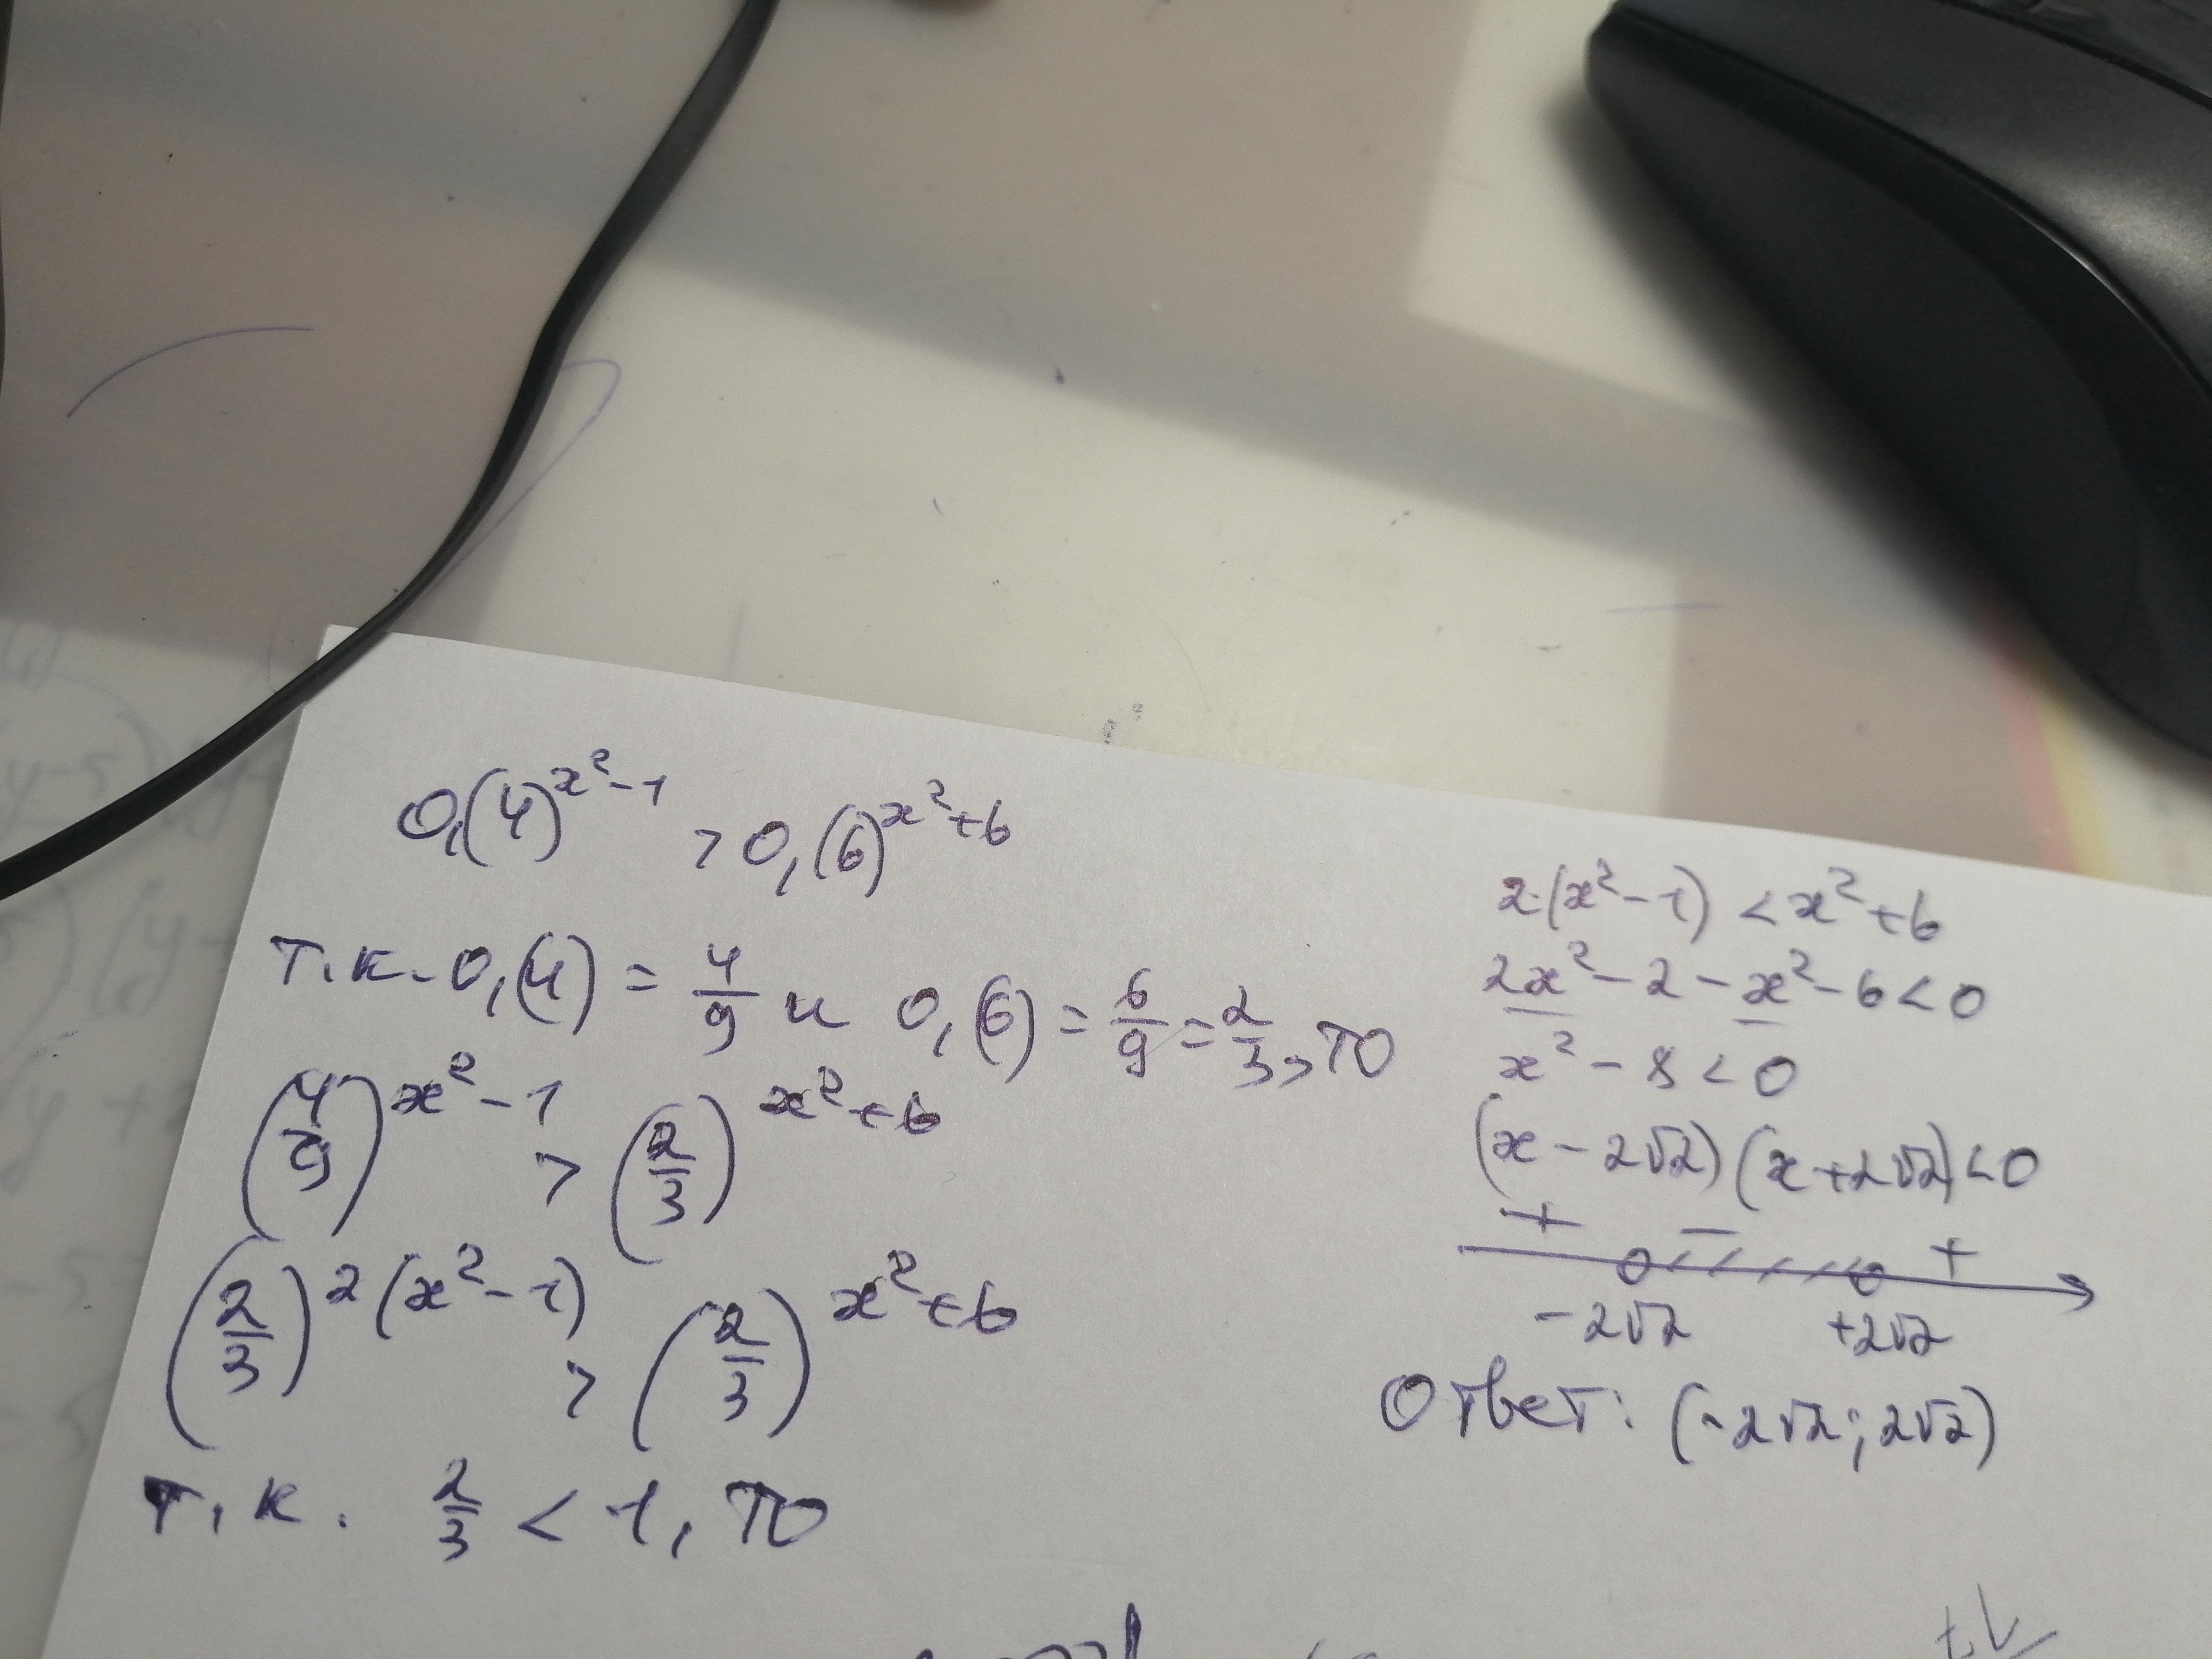 0,(4)^{x²-1} > 0,(6)^{x²+6}
т.к. 0,(4) = 4/9 и 0,(6) = 6/9 = 2/3, то
(4/9)^{x²-1} > (2/3)^{x²+6}
(2/3)^{2(x²-1)} > (2/3)^{x²+6}
т.к. 2/3 < 1, то
2·(x²-1) < x²+6
2x²-2-x²-6<0
x²-8<0
(x-2√2)(x+2√2)<0
+ − +
-2√2 +2√2
Ответ: (-2√2; 2√2)